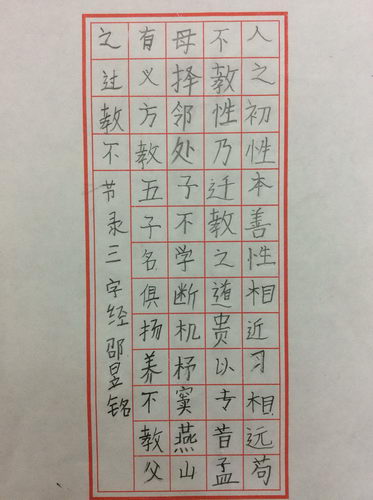 人之初性本善性相近习相远苟
不教性乃迁教之道贵以专昔孟
母择邻处子不学断机杼窦燕山
有义方教五子名俱扬养不教父
之过教不 节录三字经邵昱铭